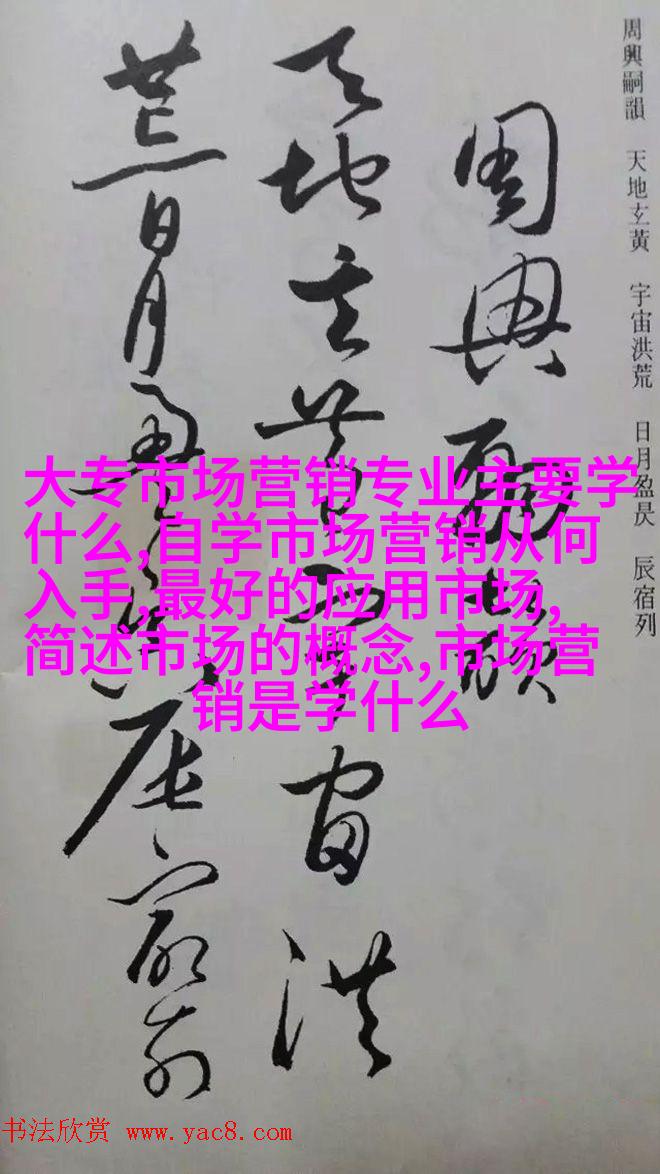 周興嗣韻 天地玄黃 宇宙洪荒 日月盈昃 辰宿列
周興嗣韻
天地玄黃宇宙洪
荒日月盈昃辰宿列
大专市场营销专业主要学
什么,自学市场营销从何
入手,最好的应用市场,
简述市场的概念,市场营
销是学什么
书法欣赏 www.yac8.com